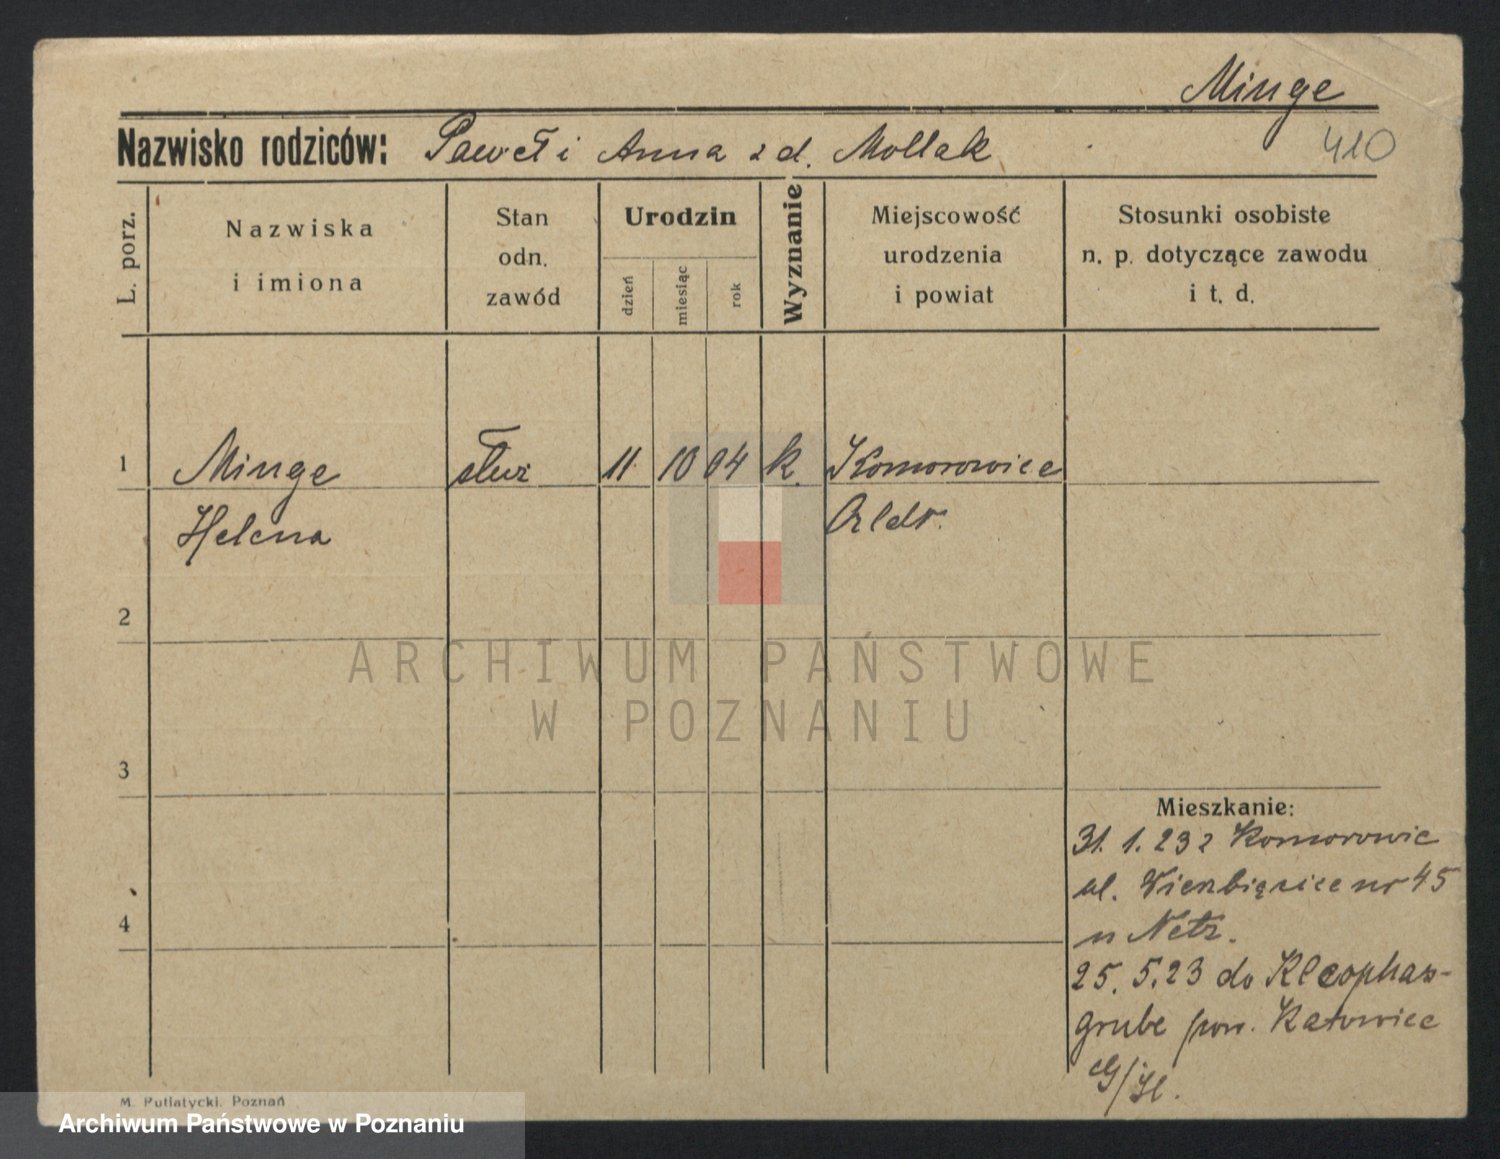 Minge
410
Nazwisko rodziców: Paweł i Anna z d. Mollak
L. porz.
Nazwiska i imiona
Stan odn. zawód
Urodzin
dzień
miesiąc
rok
Wyznanie
Miejscowość urodzenia i powiat
Stosunki osobiste n. p. dotyczące zawodu i t. d.
1 Minge służ 11. 10 04 k. Komorowice
Helena
2
3
4
Mieszkanie:
31. 1. 23 z Komorowic
ul. Wierzbięcice nr 45
u Netz.
25. 5. 23 do Kleophas-
grube pow. Katowice
M. Putiatycki, Poznań
ARCHIWUM PAŃSTWOWE
W POZNANIU
Archiwum Państwowe w Poznaniu